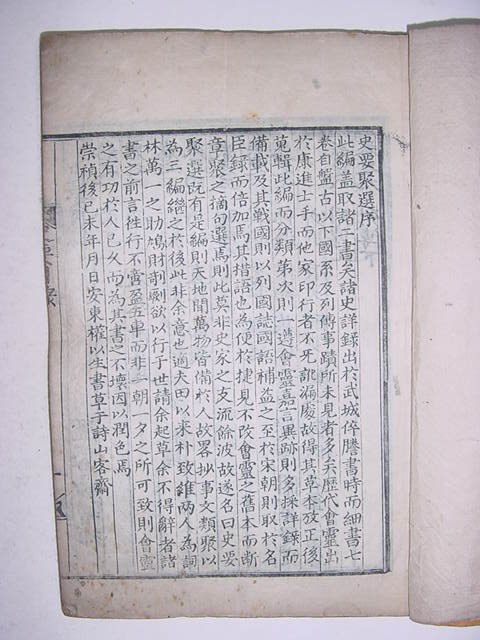 史要聚選序
此編盖取諸二書矣諸史詳録出於武城倅謄書時而細書七
卷自盤古以下國系及列傳事蹟所未見者多矣歷代會靈出
於康進士手而他家印行者不死訛漏處故得其草本放正後
蒐輯此編而分類第次則一遵會靈嘉言異跡則多採詳録而
備載及其戰國則以列國誌國語補益之至於宋朝則取於名
臣録而倍加焉其措語也為便於捷見不改會靈之舊本而斷
章聚之摘句選焉則此莫非史家之支流餘波故遂名曰史要
聚選既有是編則天地間萬物皆備於人故畧抄事文類聚以
為三編継之於後此非余意也適夫田以采朴致維兩人為詞
林萬一之助鳩財剞劂欲以行于世請余起草余不得辭者諸
書之前言徃行不啻盈五車而非一朝一夕之所可致則會靈
之有功於人已久而為其書之不壞因以潤色焉
崇禎後己未年月日安東權以生書草于詩山客齋